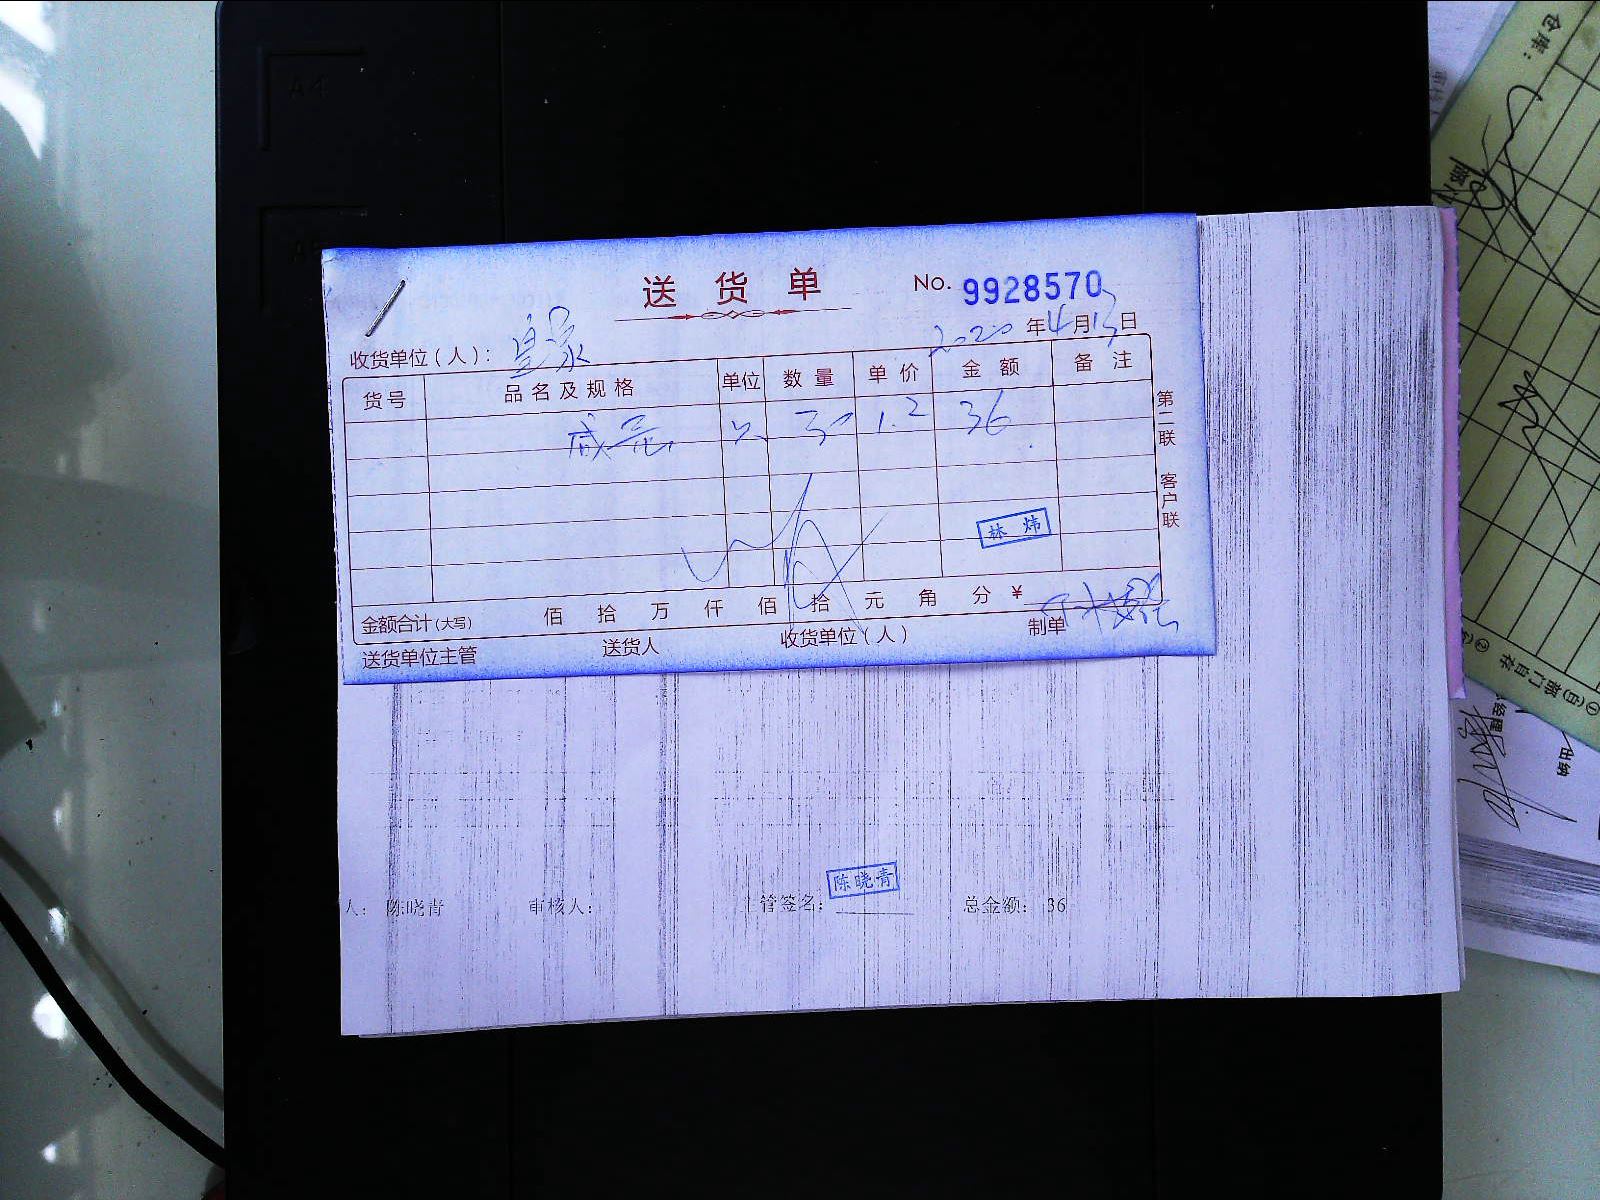 A4
A5
送货单
No. 9928570
2020年4月13日
收货单位(人): 皇家
货号 品名及规格 单位 数量 单价 金额 备注
咸蛋 只 30 1.2 36
林炜
金额合计(大写) 佰 拾 万 仟 佰 拾 元 角 分 ¥
送货单位主管 送货人 收货单位(人) 制单
第二联 客户联
陈晓青
人: 陈晓青 审核人: 主管签名: 总金额: 36
仓库:
出纳